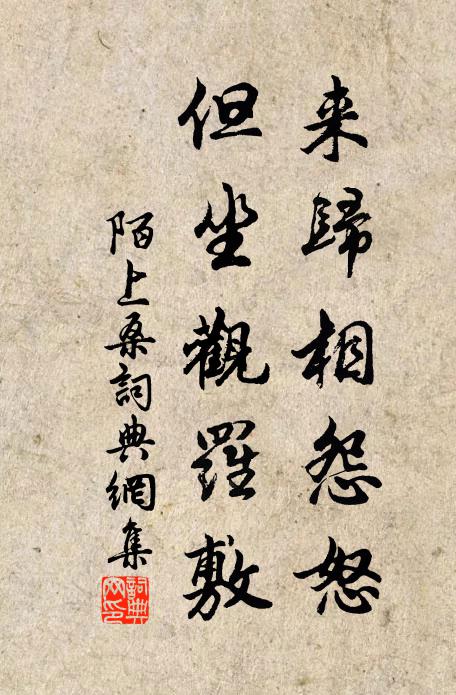 来歸相怨怒
但坐觀羅敷
陌上桑詞典網集
詞典网印